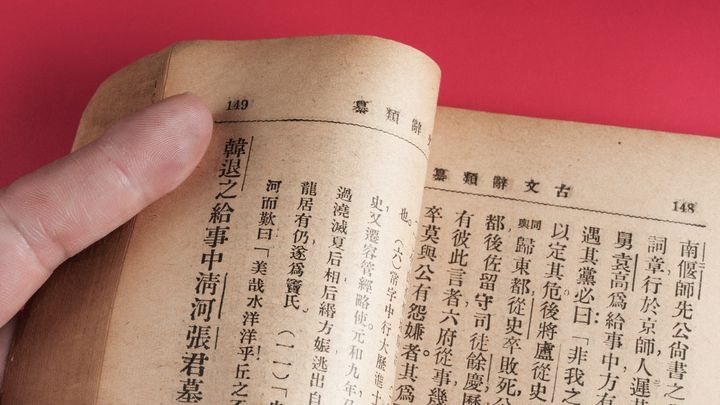 148
古文辭類纂
南偃師先公尙書之
詞章行於京師人遲
舅袁高爲給事中方有
遇其黨必曰「非我之
以定其危後將盧從史
同與歸東都從史卒敗死
都後佐留守司徒餘慶歷
有彼此言者六府從事幾
卒莫與公有怨嫌者其爲
文辭類纂
149
也。(六)常字中行大曆進士
史又遷容管經略使元和九年
過澆滅夏后相后緡方娠逃出自
龍居有仍遂爲竇氏 (一一)
河而歎曰「美哉水洋洋乎丘之不
韓退之給事中淸河張君墓